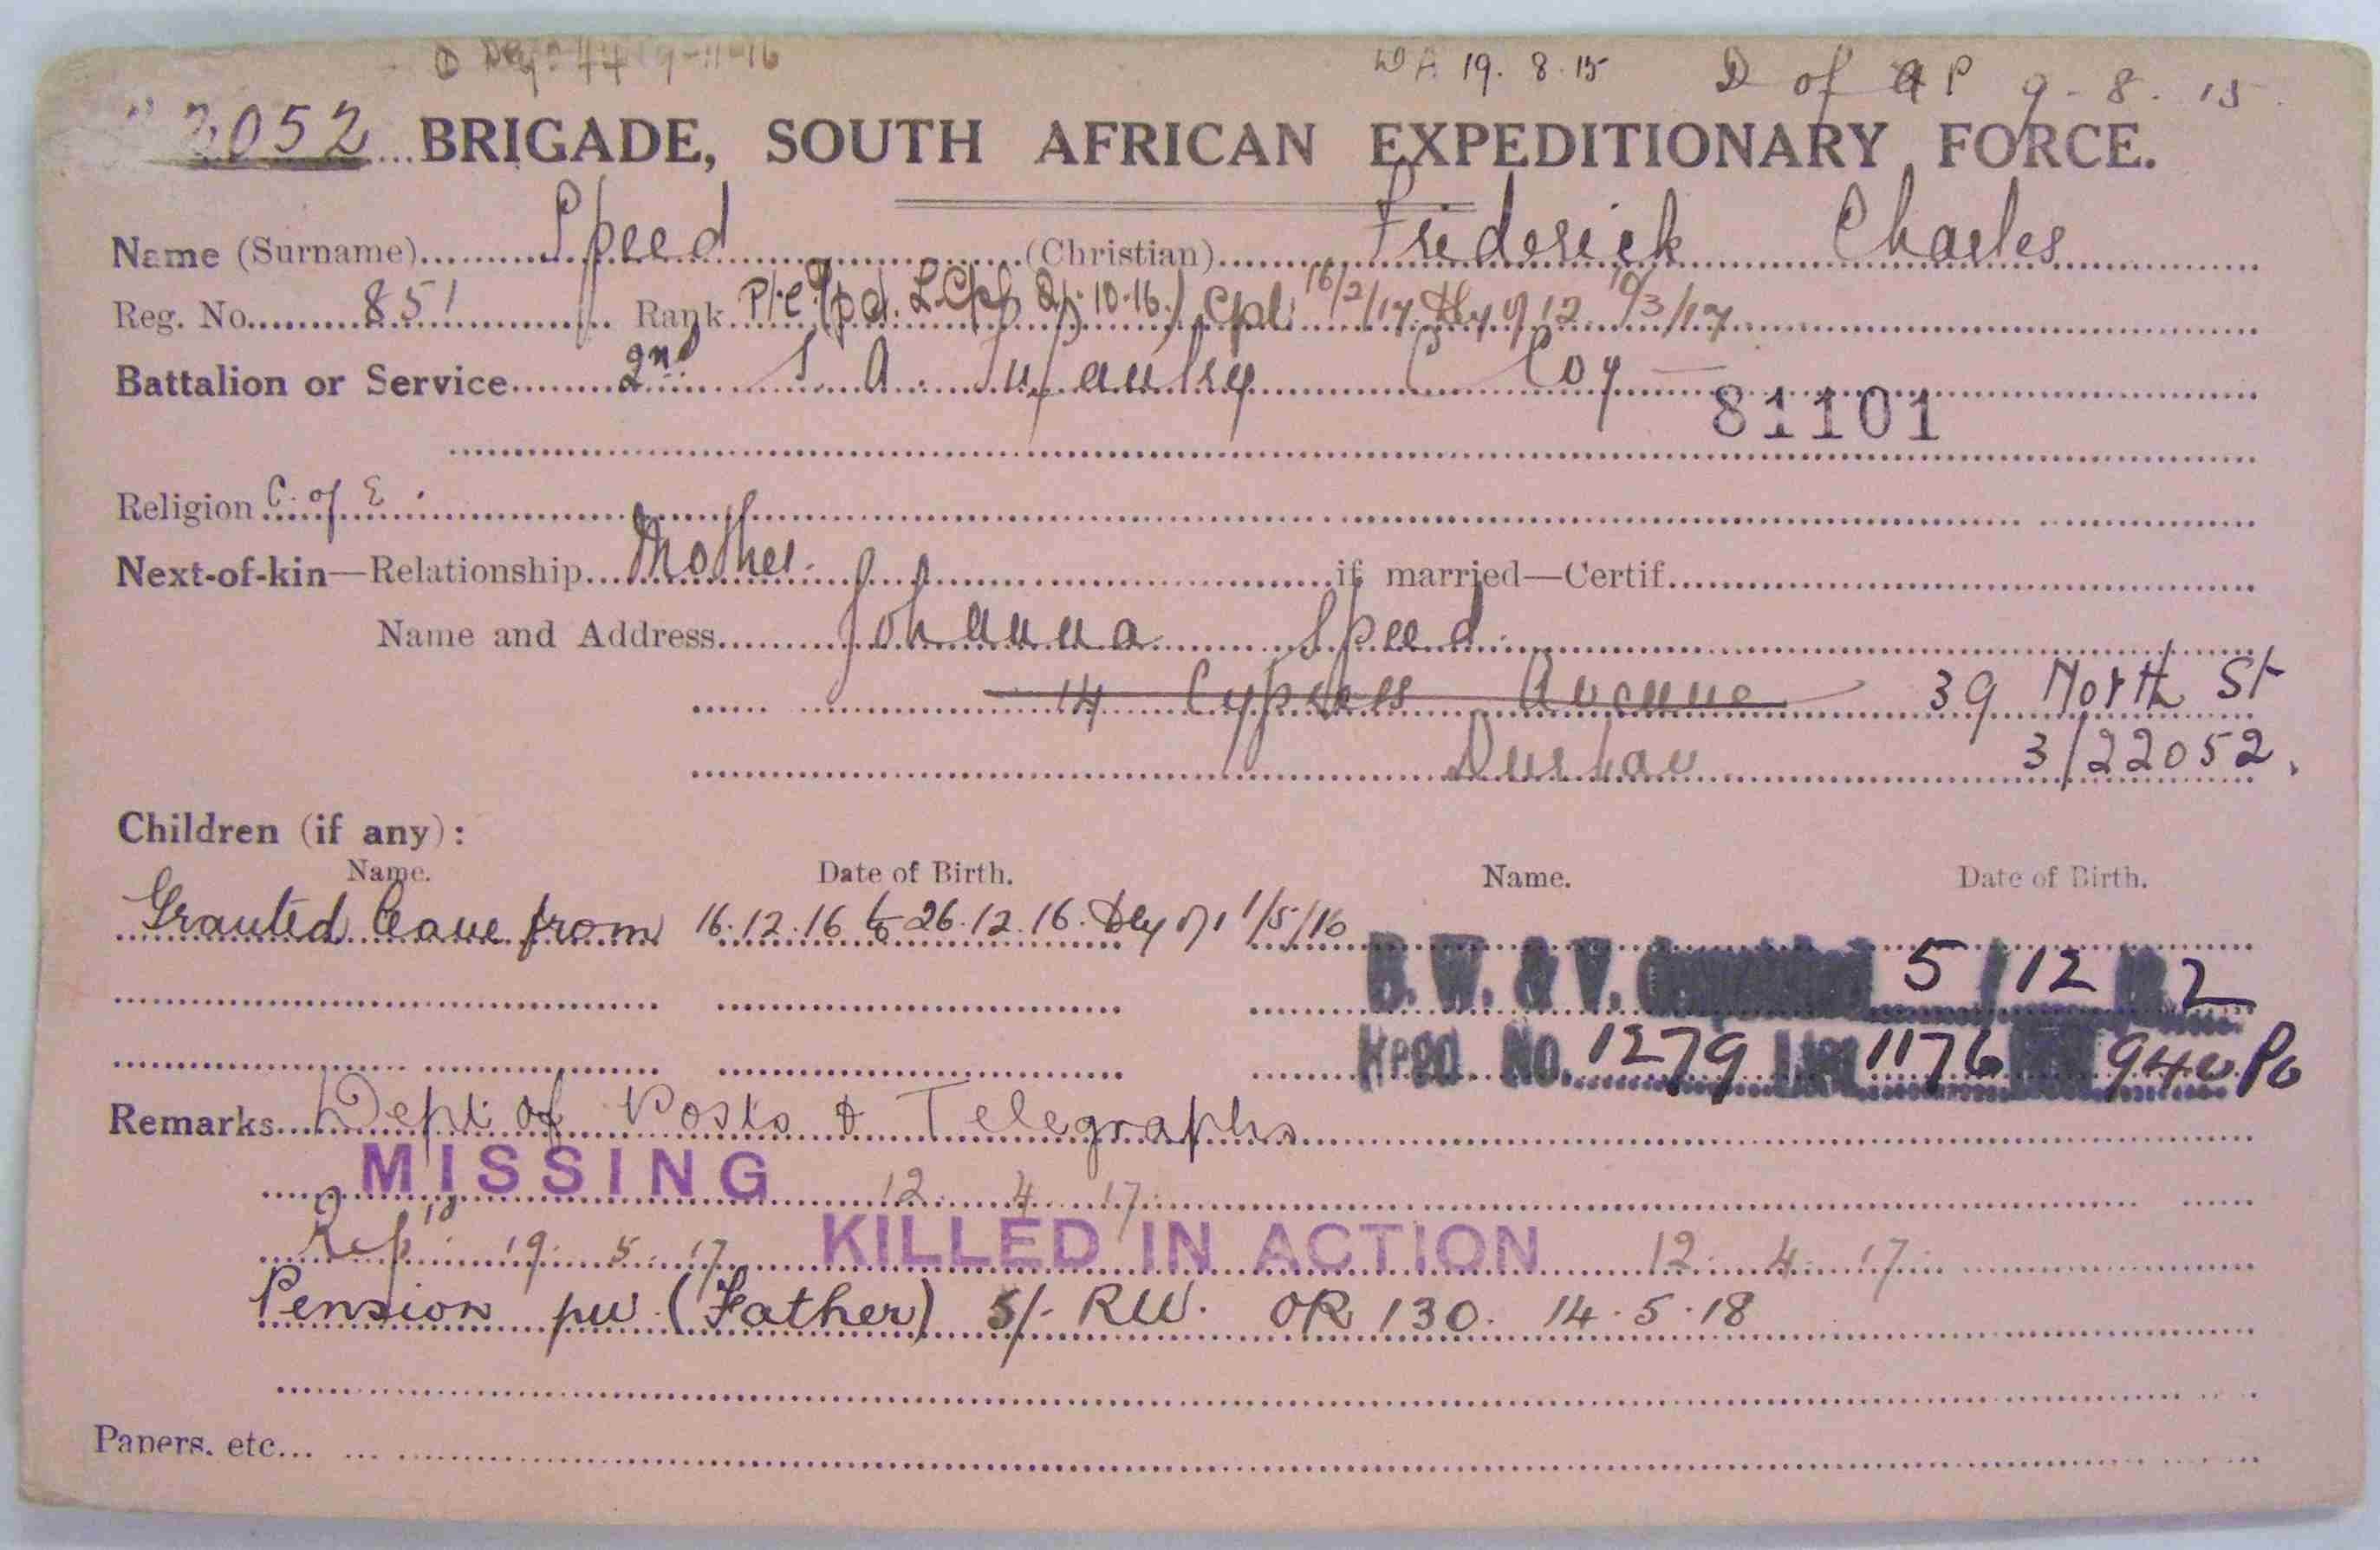 19-11-16 19. 8. 15 D of P 9. 8. 15
2052 BRIGADE, SOUTH AFRICAN EXPEDITIONARY FORCE.
Name (Surname) Speed (Christian) Frederick Charles
Reg. No. 851 Rank Pte (pd. L.Cpl 10.16.) Cpl. 16/2/17 12 10/3/17
Battalion or Service 2nd S. A. Infantry C Coy
81101
Religion C. of E.
Next-of-kin—Relationship Mother. if married—Certif.
Name and Address Johanna Speed.
14 Cypress Avenue 39 North St
Durban 3/22052.
Children (if any):
Name. Date of Birth. Name. Date of Birth.
Granted leave from 16.12.16 to 26.12.16. 1/5/16
B. W. & V. 5/12 2
Regd. No. 1279 1176 940 Po
Remarks Dept of Posts & Telegraphs
MISSING 12. 4. 17.
Rep'd 19. 5. 17 KILLED IN ACTION 12. 4. 17.
Pension pw (Father) 5/- RW. OR 130. 14.5.18
Papers, etc.